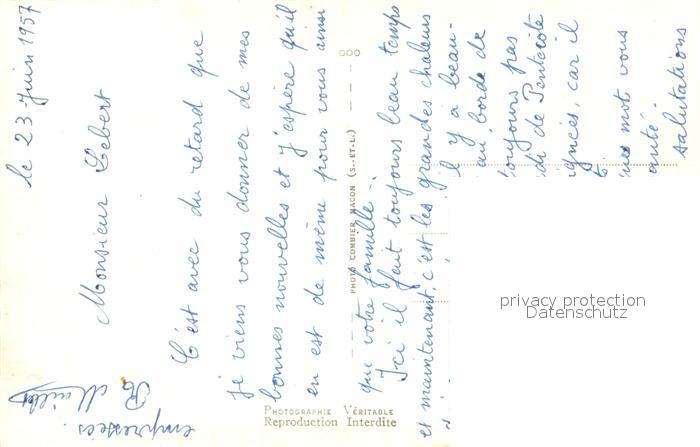 le 23 Juin 1957
Monsieur Lebert
C'est avec du retard que
je viens vous donner de mes
bonnes nouvelles et j'espère qu'il
en est de même pour vous ainsi
que votre famille.
Ici il fait toujours beau temps
et maintenant, c'est les grandes chaleurs
l y a beau-
au bords de
toujours pas
di de Pentecôte
ignées, car il
t.
mot vous
anté.
salutations
empressées.
PHOTO COMBIER MACON (S.-ET-L.)
PHOTOGRAPHIE VÉRITABLE
Reproduction Interdite
privacy protection
Datenschutz